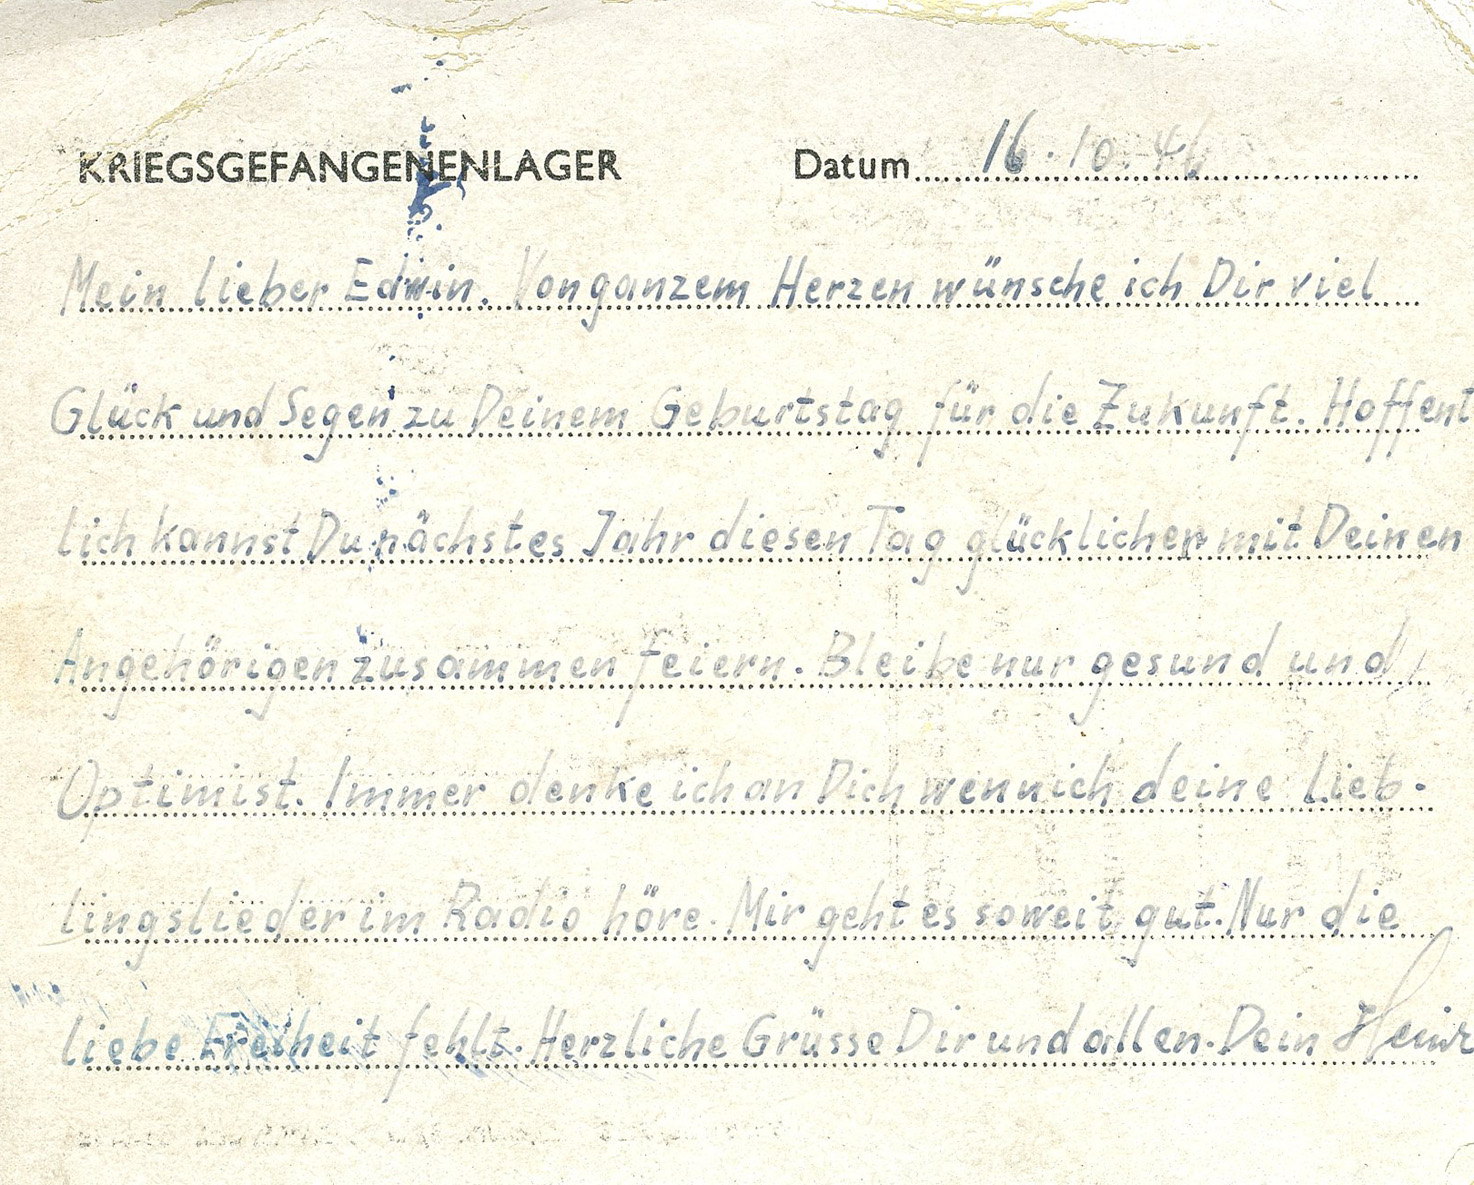 KRIEGSGEFANGENENLAGER Datum 16.10.46
Mein lieber Edwin. Von ganzem Herzen wünsche ich Dir viel
Glück und Segen zu Deinem Geburtstag für die Zukunft. Hoffent
lich kannst Du nächstes Jahr diesen Tag glücklicher mit Deinen
Angehörigen zusammen feiern. Bleibe nur gesund und
Optimist. Immer denke ich an Dich wenn ich deine Lieb-
lingslieder im Radio höre. Mir geht es soweit gut. Nur die
liebe Freiheit fehlt. Herzliche Grüsse Dir und allen. Dein Heinz